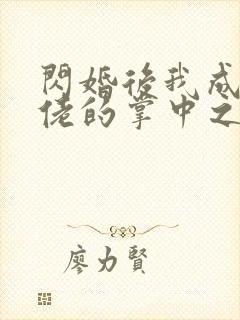 閃婚後我成
佬的掌中之
廖力賢